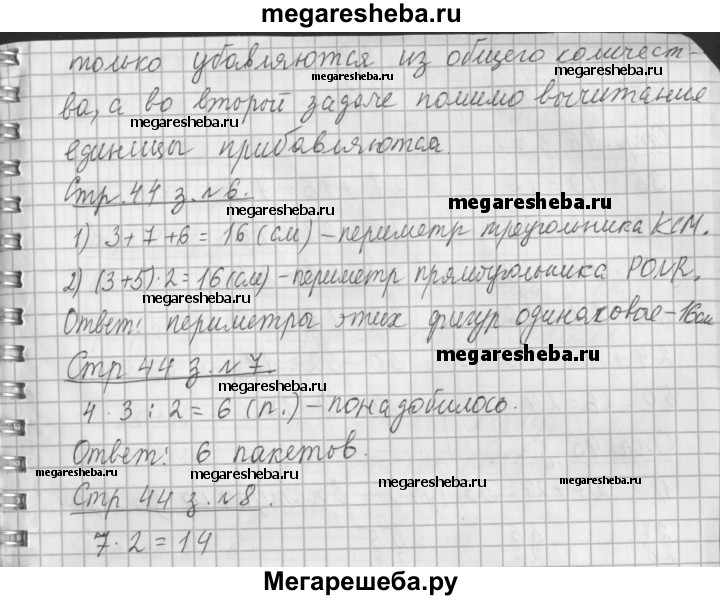 megaresheba.ru
только убавляются из общего количест-
megaresheba.ru megaresheba.ru
ва, а во второй задаче помимо вычитание
megaresheba.ru
единицы прибавляются.
Стр. 44 з. №6.
megaresheba.ru megaresheba.ru
1) 3+7+6=16 (см) – периметр треугольника КСМ.
2) (3+5)·2=16 (см) – периметр прямоугольника
megaresheba.ru
Ответ: периметры этих фигур одинаковые – 16см
megaresheba.ru
Стр 44 з. №7.
megaresheba.ru
4·3:2=6 (п.) – понадобилось.
Ответ: 6 пакетов.
megaresheba.ru megaresheba.ru megaresheba.ru megaresheba.ru
Стр 44 з. №8.
7·2=14
Мегарешеба.ру